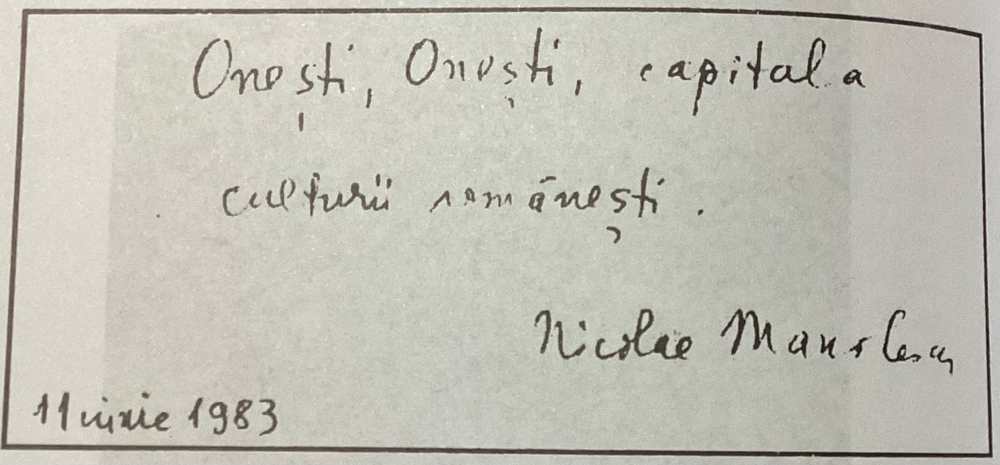 Onești, Onești, capitala
culturii românești.
Nicolae Manolescu
11 iunie 1983